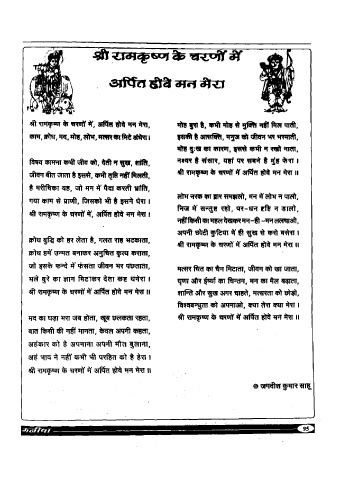 श्री रामकृष्ण के चरणों में
अर्पित होवे मन मेरा
श्री रामकृष्ण के चरणों में, अर्पित होवे मन मेरा,
काम, क्रोध, मद, मोह, लोभ, मत्सर का मिटे अंधेरा।
विषय कामना कभी जीव को, देती न सुख, शांति,
जीवन बीत जाता है इससे, कभी तृप्ति नहीं मिलती,
है मरीचिका यह, जो मन में पैदा करती भ्रांति,
गया काम से प्राणी, जिसको भी है इसने घेरा।
श्री रामकृष्ण के चरणों में, अर्पित होवे मन मेरा॥
क्रोध बुद्धि को हर लेता है, गलत राह भटकाता,
क्रोध हमें उन्मत बनाकर अनुचित कृत्य कराता,
जो इसके फन्दे में फंसता जीवन भर पंछताता,
भले बुरे का ज्ञान मिटाकर देता कष्ट घनेरा।
श्री रामकृष्ण के चरणों में, अर्पित होवे मन मेरा॥
मद का घड़ा भरा जब होता, खूब छलकता रहता,
बात किसी की नहीं मानता, केवल अपनी कहता,
अहंकार को है अपनाना अपनी मौत बुलाना,
अहं भाव ने नहीं कभी भी परहित को है हेरा।
श्री रामकृष्ण के चरणों में अर्पित होवे मन मेरा॥
मोह बुरा है, कभी मोह से मुक्ति नहीं मिल पाती,
इसकी है आसक्ति, मनुज को जीवन भर भरमाती,
मोह दुःख का कारण, इससे कभी न रखो नाता,
नश्वर है संसार, यहां पर सबने है मुंह फेरा।
श्री रामकृष्ण के चरणों में अर्पित होवे मन मेरा॥
लोभ नरक का द्वार समझलो, मन में लोभ न पालो,
निज में सन्तुष्ट रहो, पर-धन दृष्टि न डालो,
नहीं किसी का महल देखकर मन-ही-मन ललचाओ,
अपनी छोटी कुटिया में ही सुख से करो बसेरा।
श्री रामकृष्ण के चरणों में अर्पित होवे मन मेरा॥
मत्सर चित का चैन मिटाता, जीवन को खा जाता,
घृणा और ईर्ष्या का चिन्तन, मन का मैल बढ़ाता,
शान्ति और सुख अगर चाहते, मत्सरता को छोड़ो,
विश्वबन्धुता को अपनाओ, क्या तेरा क्या मेरा।
श्री रामकृष्ण के चरणों में अर्पित होवे मन मेरा॥
जगदीश कुमार साहू
95